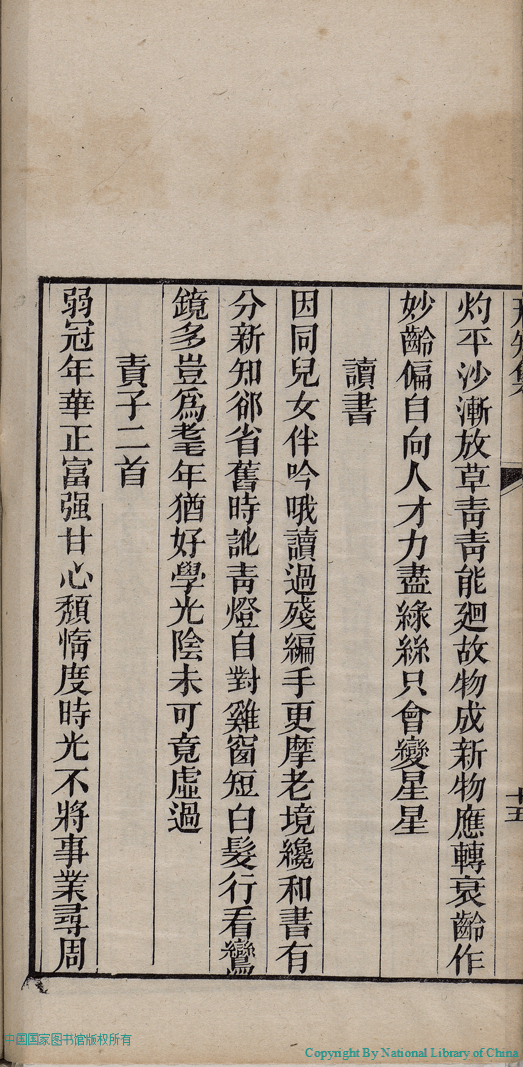 灼平沙漸放草靑靑能廻故物成新物應轉衰齡作
妙齡偏自向人才力盡綠絲只會變星星
讀書
因同兒女伴吟哦讀過殘編手更摩老境纔和書有
分新知卻省舊時訛靑燈自對雞窗短白髮行看鸞
鏡多豈爲耄年猶好學光陰未可竟虛過
責子二首
弱冠年華正富强甘心頽惰度時光不將事業尋周
十五
中国国家图书馆版权所有
Copyright By National Library of China